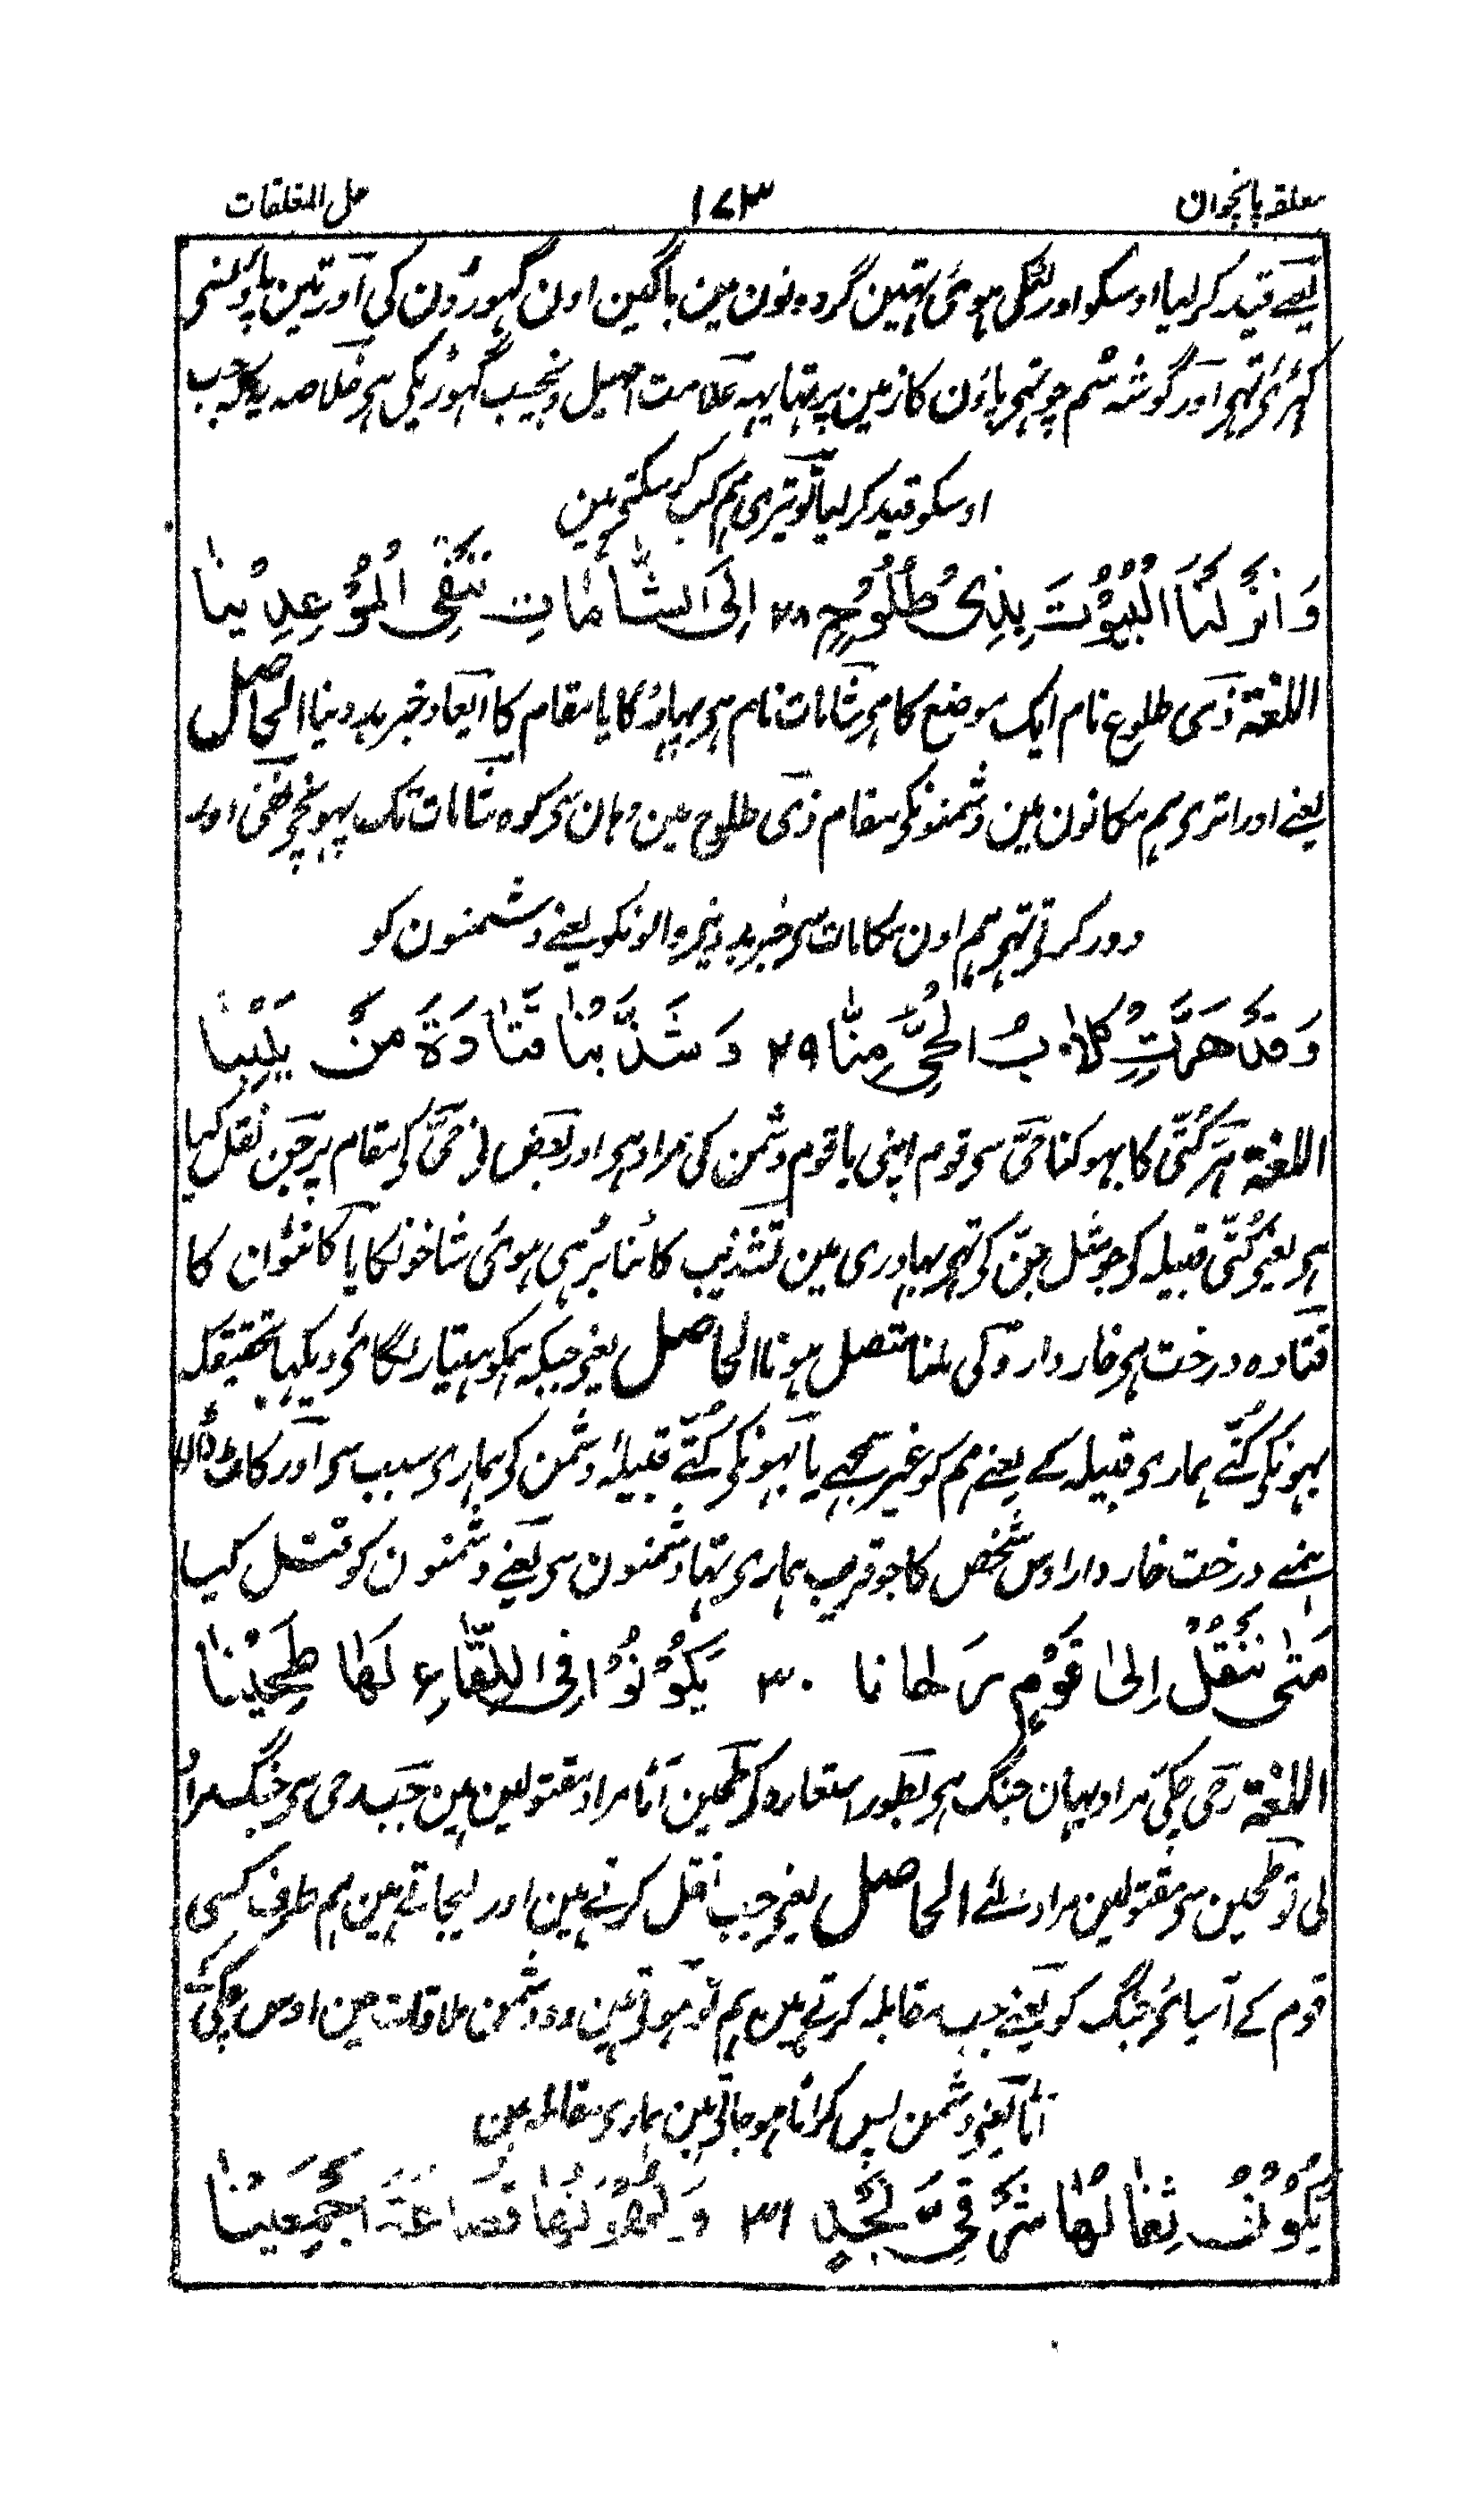 معلقہ پانچوان ۱۷۳ حل المغلقات
یعنے قید کر لیا اوسکو اور لٹکی ہوئی تہین گردنون مین باگین اون گہوڑون کی اور تین پاؤنسی
کہڑی تہی اور گوشہ سم چوتہی پاؤن کا زمین پر تہا یہہ علامت اصیل و نجیب گہوڑیکی ہی خلاصہ یہ کہ جب
اوسکو قید کر لیا تو تیری ہم کب کر سکتی ہین
وَاَنْزَلْنَا الْبُیُوْتَ بِذِیْ طُلُوْحٍ ۲۸ اِلَی الشَّامَاتِ نَنْفِی الْمُوْعِدِیْنَا
اللغۃ ذی طلوع نام ایک موضع کا ہی شامات نام ہی پہاڑ کا یا مقام کا ایعاد خبر بد دینا الحاصل
یعنے اور اتری ہم مکانون مین دشمنونکی مقام ذی طلوح مین وہان سی کوہ شامات تک پہونچی یعنی اور
دور کرتی تہی ہم اون مکانات سی خبر بد دینی والونکو یعنے دشمنون کو
وَقَدْ هَرَّتْ کِلَابُ الْحَیِّ مِنَّا ۲۹ وَشَذَّبْنَا قَتَادَةَ مَنْ یَلِیْنَا
اللغۃ ہرّ کتّی کا بہوکنا حیّ سی قوم اپنی یا قوم دشمن کی مراد ہی اور بعض نی حیّ کی مقام پر جن نقل کیا
ہی یعنی کتّی قبیلہ کی جو مثل جن کی تہی بہادری مین تشذیب کاٹنا بڑہی ہوئی شاخونکا یا کانٹوان کا
قتادہ درخت ہی خار دار ولی ملنا متصل ہونا الحاصل یعنی جبکہ ہمکو ہتیار لگائی دیکہا تحقیقکہ
بہونکی کتّے ہماری قبیلہ کے یعنے ہم کو غیر سمجہے یا بہونکی کتّے قبیلۂ دشمن کی ہماری سبب سی اور کاٹ ڈالا
ہمنے درخت خار دار اوس شخص کا جو قریب ہماری تہا دشمنون سی یعنے دشمنون کو قتل کیا
مَتٰی نَنْقُلْ اِلٰی قَوْمٍ رَحَانَا ۳۰ یَکُوْنُوْا فِی اللِّقَاءِ لَهَا طَحِیْنَا
اللغۃ رحی چکی مراد یہان جنگ ہی بطور استعارہ کی طحین آٹا مراد مقتولین ہین جب رحی سی جنگ مراد
لی تو طحین سی مقتولین مراد لئے الحاصل یعنی جب نقل کرتے ہین اور لیجاتے ہین ہم طرف کسی
قوم کے آسیای جنگ کو یعنے جب مقابلہ کرتے ہین ہم تو ہوتی ہین وہ دشمن ملاقات مین اوس چکی کی
آٹا یعنی دشمن پس کر آٹا ہو جاتی ہین ہماری مقابلہ مین
یَکُوْنُ ثِفَالُهَا شَرْقِیَّ نَجْدٍ ۳۱ وَلُهْوَتُهَا قُضَاعَةَ اَجْمَعِیْنَا